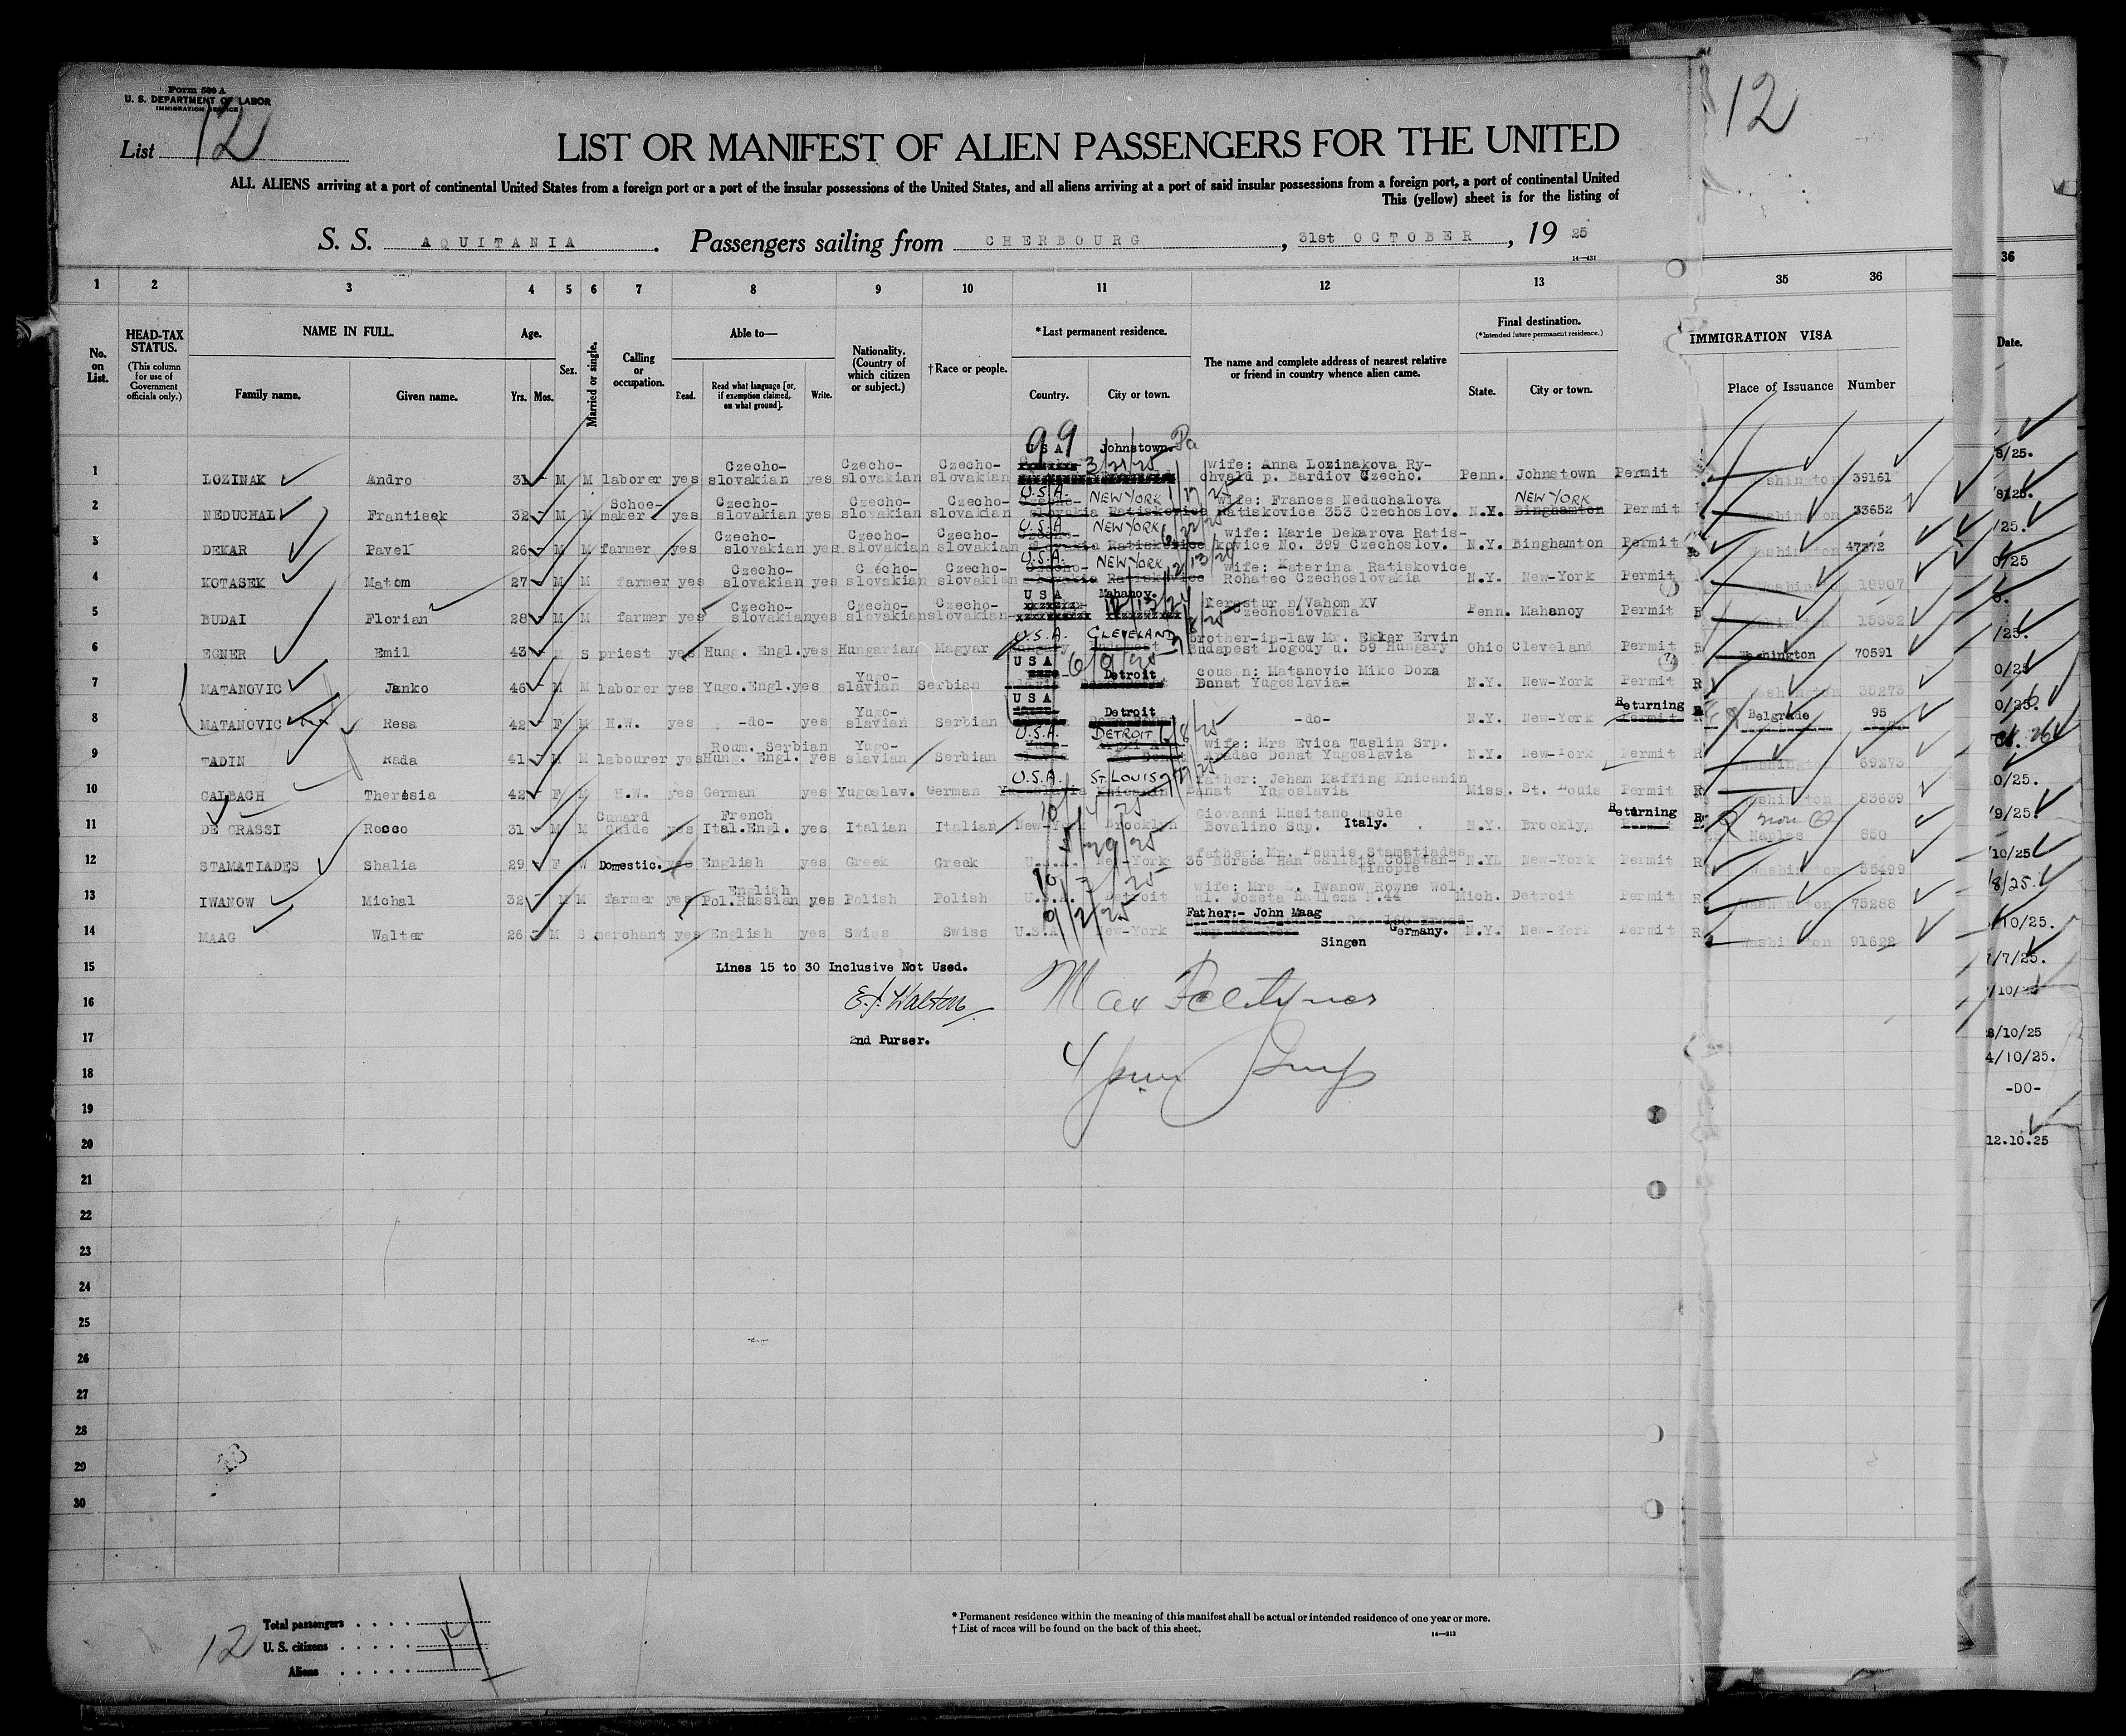 Form 500 A
U. S. DEPARTMENT OF LABOR
IMMIGRATION SERVICE
List 12
12
LIST OR MANIFEST OF ALIEN PASSENGERS FOR THE UNITED
ALL ALIENS arriving at a port of continental United States from a foreign port or a port of the insular possessions of the United States, and all aliens arriving at a port of said insular possessions from a foreign port, a port of continental United
This (yellow) sheet is for the listing of
S. S. AQUITANIA. Passengers sailing from CHERBOURG, 31st OCTOBER, 19 25
14—431
1 2 3 4 5 6 7 8 9 10 11 12 13 35 36 36
No. on List.
HEAD-TAX STATUS.
(This column for use of Government officials only.)
NAME IN FULL.
Family name. Given name.
Age.
Yrs. Mos.
Sex.
Married or single.
Calling or occupation.
Able to—
Read. Read what language [or, if exemption claimed, on what ground]. Write.
Nationality. (Country of which citizen or subject.)
† Race or people.
*Last permanent residence.
Country. City or town.
The name and complete address of nearest relative or friend in country whence alien came.
Final destination.
(*Intended future permanent residence.)
State. City or town.
IMMIGRATION VISA
Place of Issuance Number
Date.
99
U S A Johnstown. Pa
1 LOZINAK Andro 31 M M laborer yes Czecho-slovakian yes Czecho-slovakian Czecho-slovakian 3/21/25 wife: Anna Lozinakova Ry-chvald p. Bardiov Czecho. Penn. Johnstown Permit Washington 39161
2 NEDUCHAL Frantisek 32 M M Schoe-maker yes Czecho-slovakian yes Czecho-slovakian Czecho-slovakian U.S.A. NEW YORK Slovakia Ratiskovice wife: Frances Neduchalova Ratiskovice 353 Czechoslov. N.Y. NEW YORK Binghamton Permit Washington 33652
3 DEKAR Pavel 26 M M farmer yes Czecho-slovakian yes Czecho-slovakian Czecho-slovakian U.S.A NEW YORK Slovakia Ratiskovice wife: Marie Dekarova Ratis-kovice No. 399 Czechoslov. N.Y. Binghamton Permit Washington 47272
4 KOTASEK Matom 27 M M farmer yes Czecho-slovakian yes Czecho-slovakian Czecho-slovakian U.S.A. NEW YORK Slovakia Ratiskovice wife: Katerina Ratiskovice Rohatec Czechoslovakia N.Y. New-York Permit Washington 18907
5 BUDAI Florian 28 M M farmer yes Czecho-slovakian yes Czecho-slovakian Czecho-slovakian U S A Mahanoy. Kerestur n/Vahom XV Czechoslovakia Penn. Mahanoy Permit R Washington
6 EGNER Emil 43 M S priest yes Hung. Engl. yes Hungarian Magyar U.S.A. CLEVELAND Hungary Budapest brother-in-law Mr. Ekker Ervin Budapest Logody u. 59 Hungary Ohio Cleveland Permit R Washington 70591
7 MATANOVIC Janko 46 M M laborer yes Yugo.Engl. yes Yugo-slavian Serbian U S A Detroit cousin: Matanovic Miko Doxa Banat Yugoslavia- N.Y. New-York Permit R Washington 35273
8 MATANOVIC Resa 42 F M H.W. yes -do- yes Yugo-slavian Serbian U S A Detroit -do- N.Y. New-York Returning Permit Belgrade 95
9 TADIN Rada 41 M M labourer yes Roum. Serbian Hung. Engl. yes Yugo-slavian Serbian U.S.A. DETROIT wife: Mrs Evica Taslin Srp. Aradac Donat Yugoslavia N.Y. New-York Permit R Washington 69275
10 CALBACH Theresia 42 F M H.W. yes German yes Yugoslav. German U.S.A. ST. LOUIS Yugoslavia Knicanin father: Jeham Kaffing Knicanin Banat Yugoslavia Miss. St. Louis Permit R Washington 83639
11 DE GRASSI Rocco 31 M M Cunard Guide yes French Ital.Engl. yes Italian Italian New-York Brooklyn Giovanni Musitano uncle Bovalino Sup. Italy. N.Y. Brooklyn Returning Permit R Naples 550
12 STAMATIADES Shalia 29 F W Domestic. yes English yes Greek Greek U.S.A. New-York father: Mr. Pouris Stamatiades Constan-tinople N.Y. New-York Permit R Washington 35499
13 IWANOW Michal 32 M M farmer yes English Pol.Russian yes Polish Polish U.S.A. Detroit wife: Mrs Z. Iwanow Rowne Wol. ul. Jozefa Hallera N.44 Mich. Detroit Permit R Washington 75288
14 MAAG Walter 26 M S merchant yes English yes Swiss Swiss U.S.A 9/2/25 New-York Father:- John Maag Singen Germany. N.Y. New-York Permit R Washington 91622
15 Lines 15 to 30 Inclusive Not Used.
16
17 2nd Purser.
18
19
20
21
22
23
24
25
26
27
28
29
30
8/10/25
4/10/25.
-DO-
12.10.25
12 Total passengers
U. S. citizens
Aliens
* Permanent residence within the meaning of this manifest shall be actual or intended residence of one year or more.
† List of races will be found on the back of this sheet.
14—313